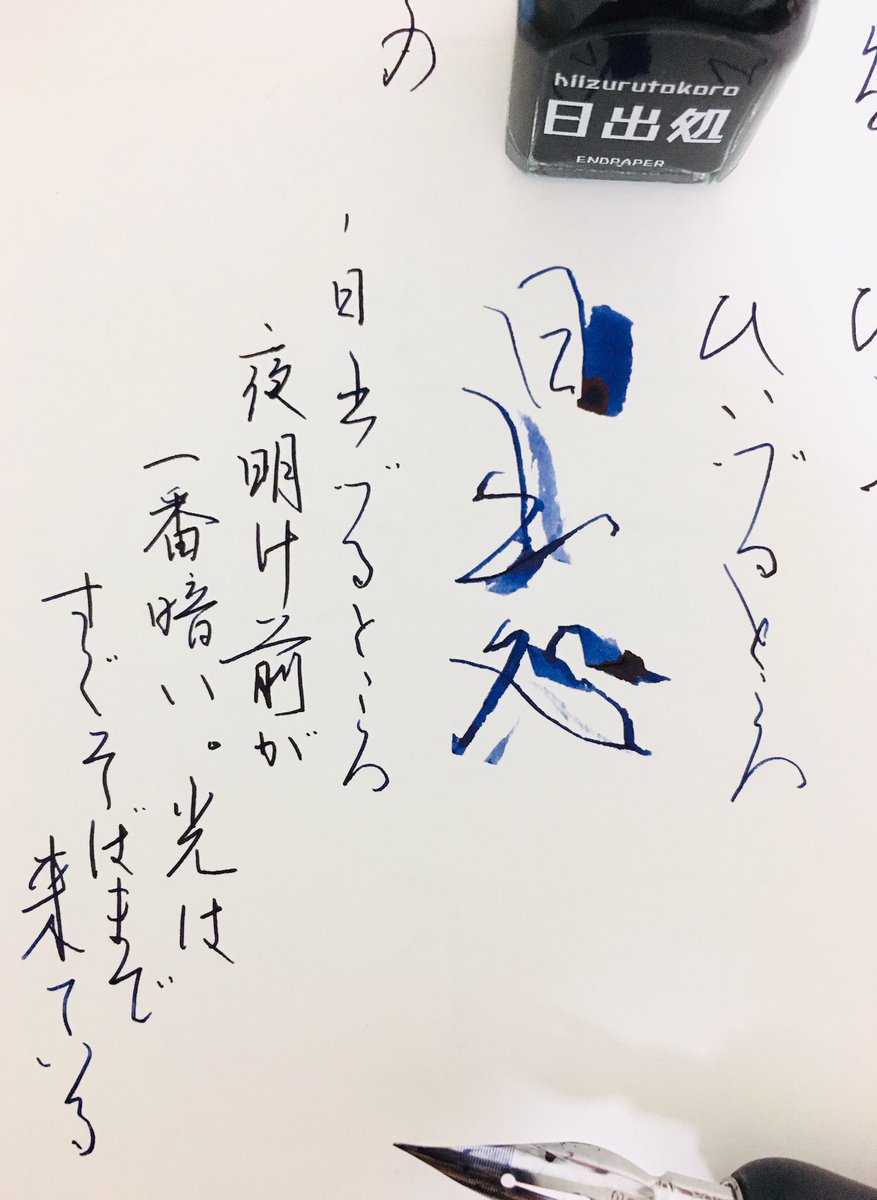 hiizurutokoro
日出処
ENDPAPER
ひいづるところ
日出処
日出づるところ
夜明け前が
一番暗い。光は
すぐそばまで
来ている